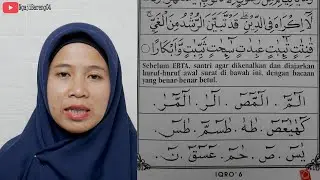 NgajiBareng04
لَآ اِكْرَاهَ فِى الدِّيْنِ قَدْ تَبَيَّنَ الرُّشْدُ مِنَ الْغَيِّ
قٰنِتٰتٍ تٰٓئِبٰتٍ عٰبِدٰتٍ سٰٓئِحٰتٍ ثَيِّبٰتٍ وَّاَبْكَارًا
Sebelum EBTA, santri agar dikenalkan dan diajarkan
huruf-huruf awal surat di bawah ini, dengan bacaan
yang benar-benar betul.
الٓمّٓ . الٓمّٓصٓ . الٓرٰ . الٓمّٓرٰ .
كٓهٰيٰعٓصٓ . طٰهٰ . طٰسٓمّٓ . طٰسٓ .
يٰسٓ . صٓ . حٰمٓ . عٓسٓقٓ . نٓ .
IQRO' 6